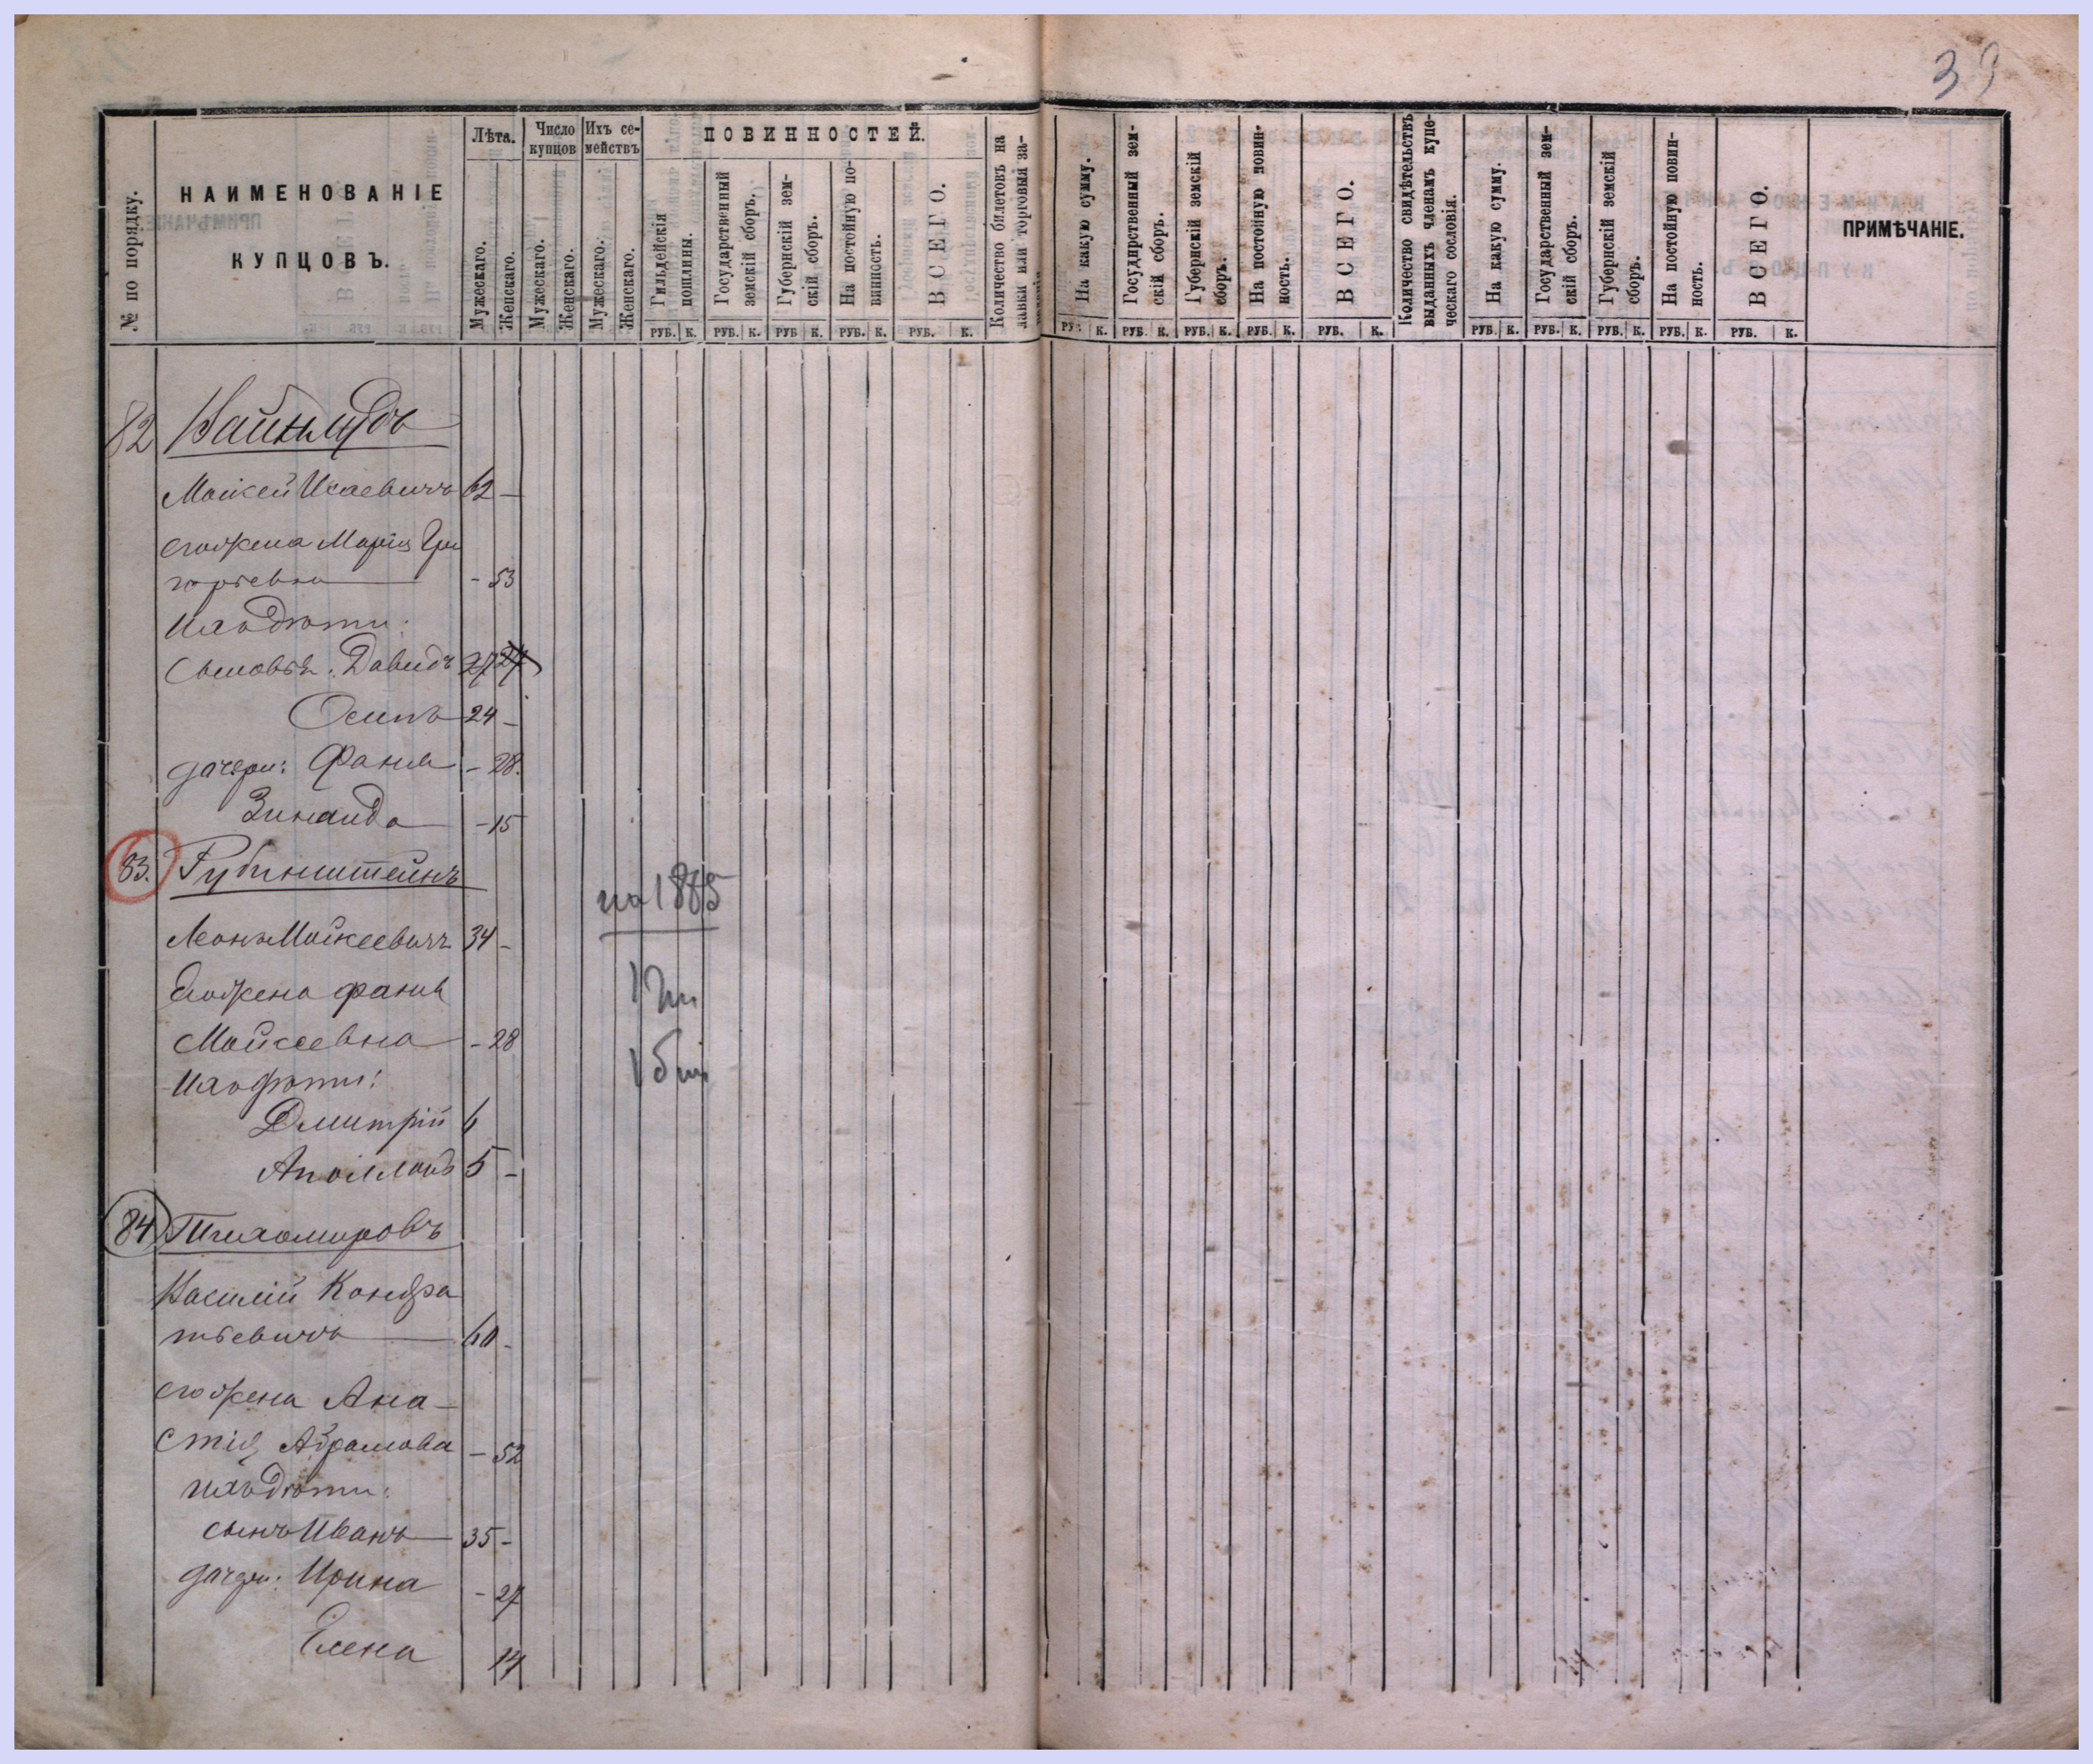 39
№ по порядку.
НАИМЕНОВАНІЕ
КУПЦОВЪ.
Лѣта.
Мужескаго.
Женскаго.
Число купцовъ
Мужескаго.
Женскаго.
Ихъ семействъ
Мужескаго.
Женскаго.
ПОВИННОСТЕЙ.
Гильдейскія пошлины.
Государственный земскій сборъ.
Губернскій земскій сборъ.
На постойную повинность.
ВСЕГО.
Количество билетовъ на лавки или торговыя за-
На какую сумму.
Государственный земскій сборъ.
Губернскій земскій сборъ.
На постойную повинность.
ВСЕГО.
Количество свидѣтельствъ выданныхъ членамъ купеческаго сословія.
На какую сумму.
Государственный земскій сборъ.
Губернскій земскій сборъ.
На постойную повинность.
ВСЕГО.
ПРИМѢЧАНІЕ.
РУБ. К. РУБ. К. РУБ К. РУБ. К. РУБ. К. РУБ. К. РУБ. К. РУБ. К. РУБ. К. РУБ. К. РУБ. К. РУБ. К. РУБ. К. РУБ. К. РУБ. К.
82
Моисей Исаевичъ 62 -
его жена Марія Гри
горьевна - 53
Ихъ дѣти:
Сыновья: Давидъ 27
Осипъ 24 -
дочери: Фаня - 28.
Зинаида - 15
83. Рубинштейнъ
на 1885
Леонъ Мойсеевичъ 34 -
Его жена Фаня
Мойсеевна - 28
Ихъ дѣти:
Дмитрій 6
Аполлонъ 5 -
84 Тихомировъ
Василій Кондра
тьевичъ 60 -
его жена Ана-
стія Абрамова - 52
ихъ дѣти:
сынъ Иванъ 35 -
дочери: Ирина - 27
Елена 14